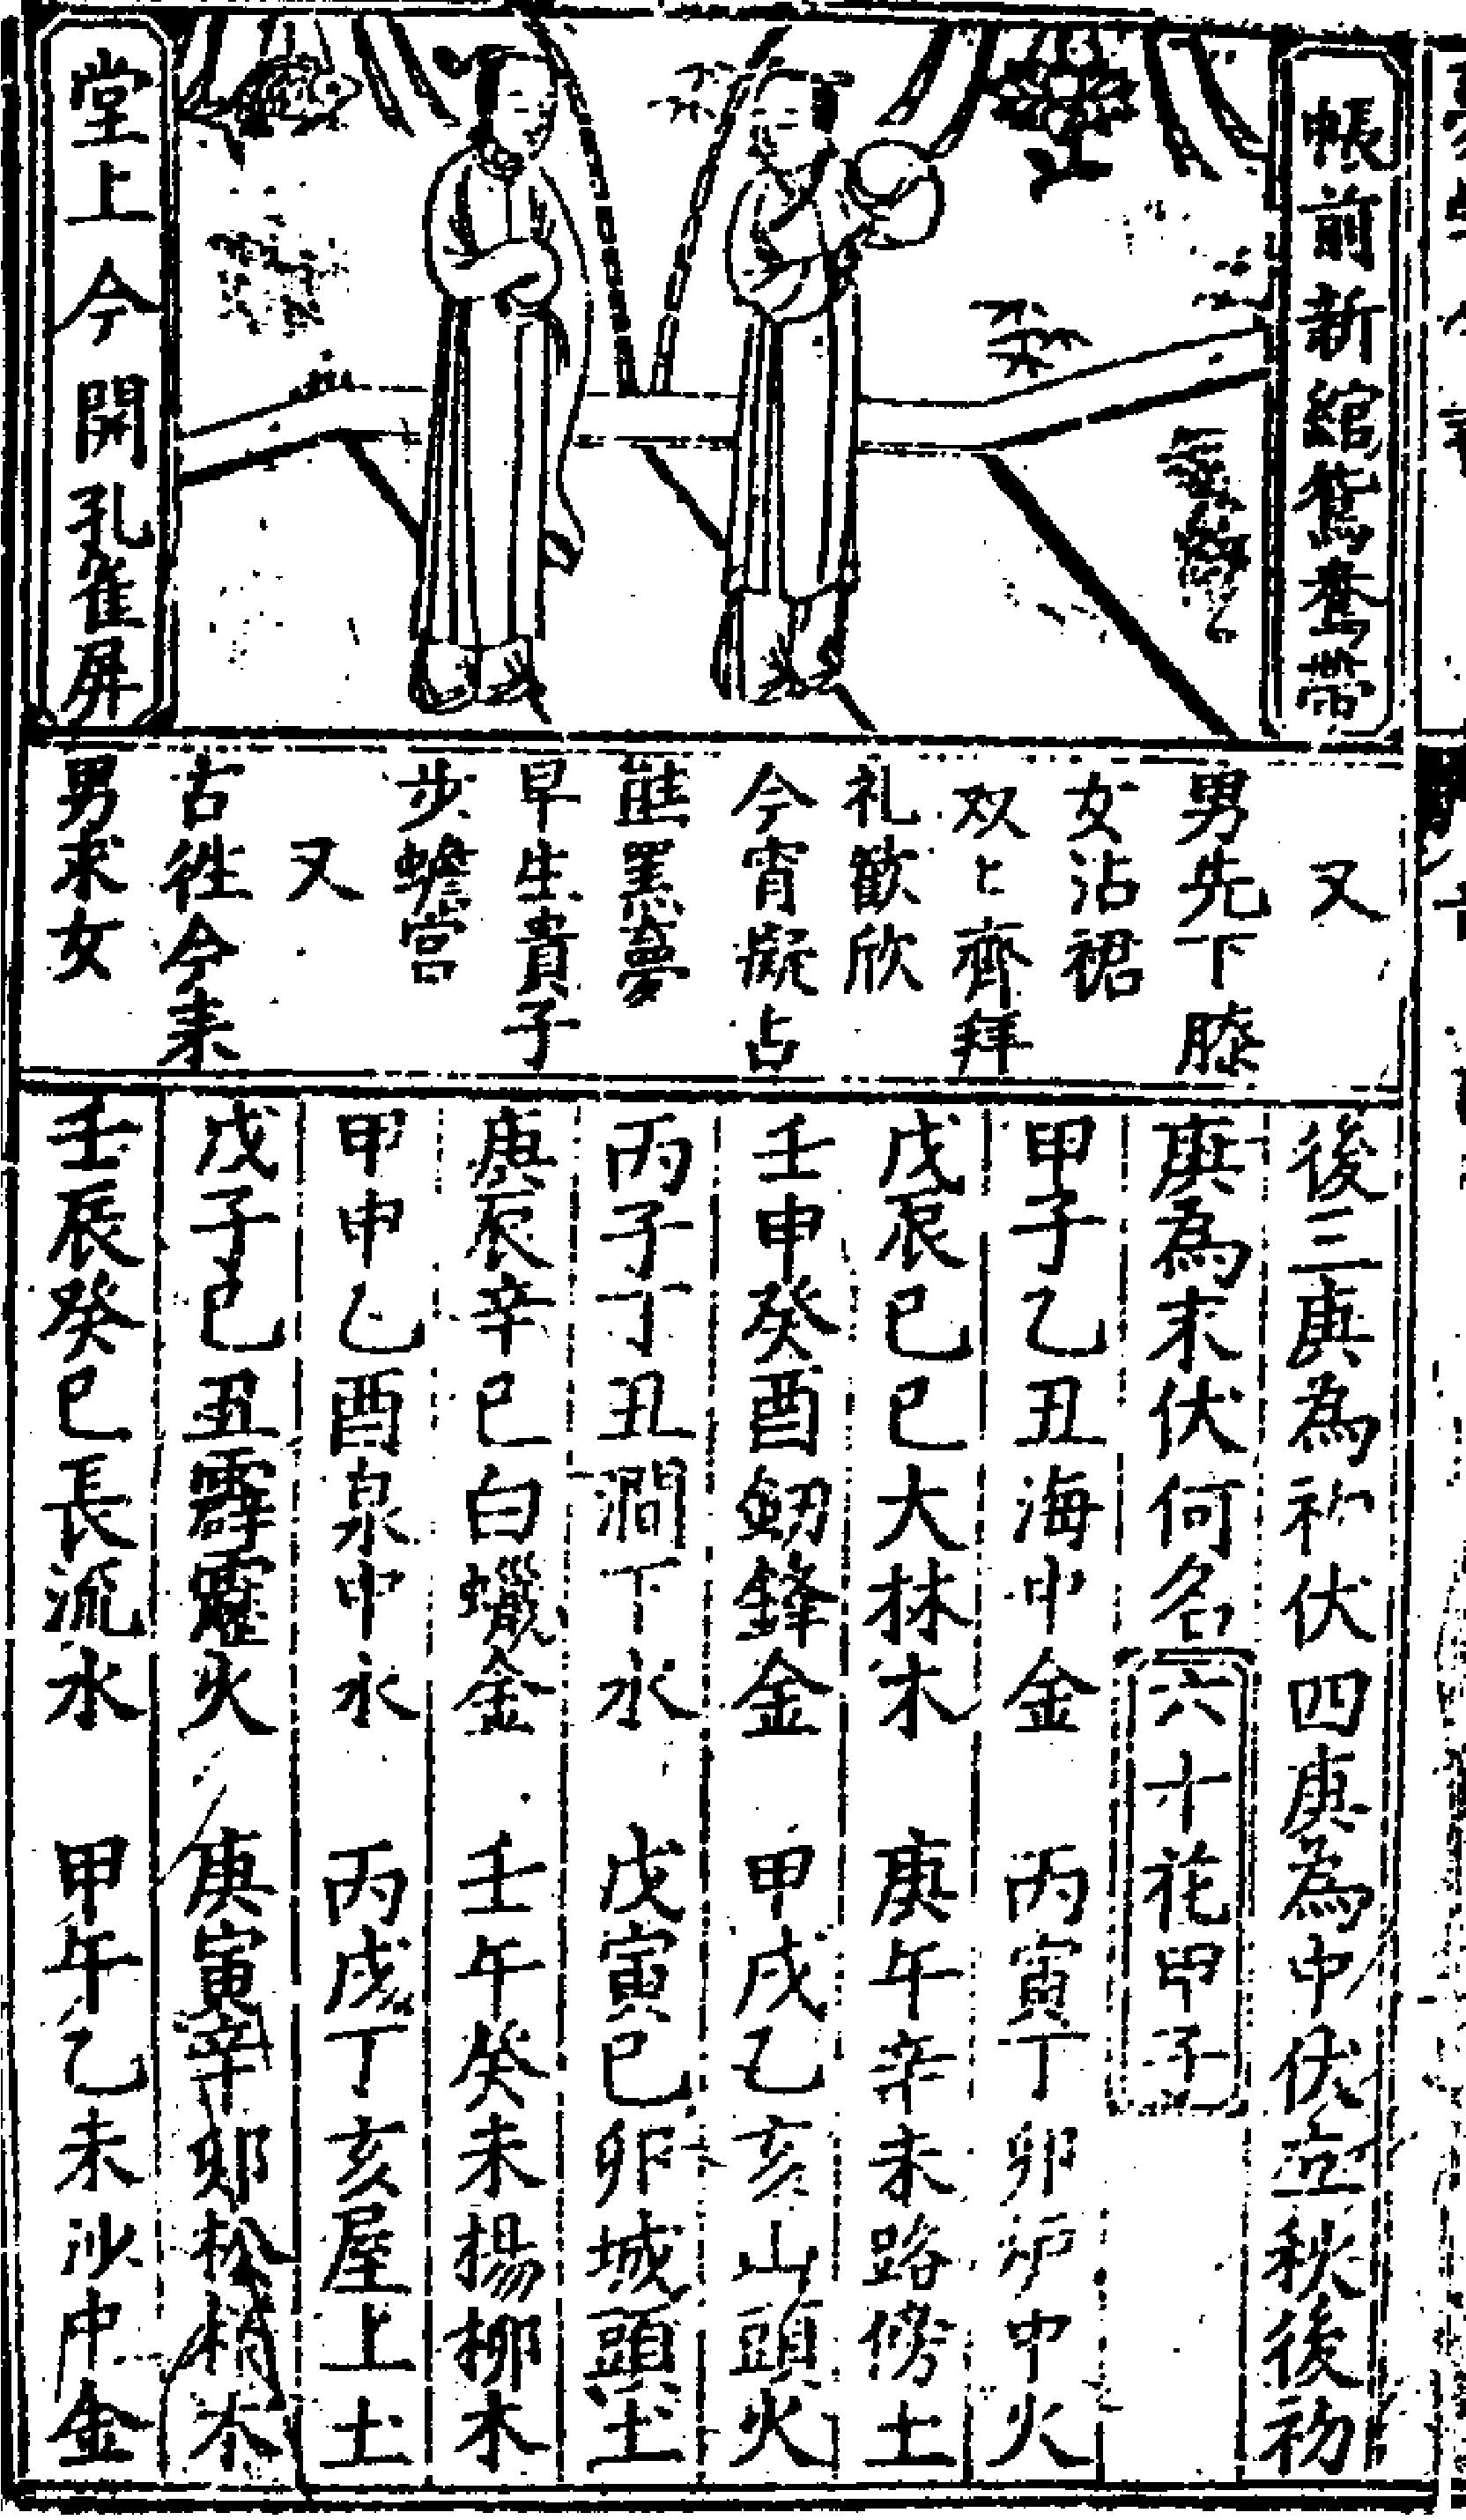 帳前新綰鴛鴦帶
堂上今開孔雀屏
又
男先下膝
女沾裙
双〻齊拜
礼歡欣
今宵擬占
熊羆夢
早生貴子
步蟾宮
又
古徃今来
男求女
後三庚為初伏四庚為中伏立秋後初
庚為末伏何名六十花甲子
甲子乙丑海中金 丙寅丁卯炉中火
戊辰己巳大林木 庚午辛未路傍土
壬申癸酉劒鋒金 甲戌乙亥山頭火
丙子丁丑澗下水 戊寅己卯城頭土
庚辰辛巳白蠟金 壬午癸未楊柳木
甲申乙酉泉中水 丙戌丁亥屋上土
戊子己丑霹靂火 庚寅辛卯松栢木
壬辰癸巳長流水 甲午乙未沙中金